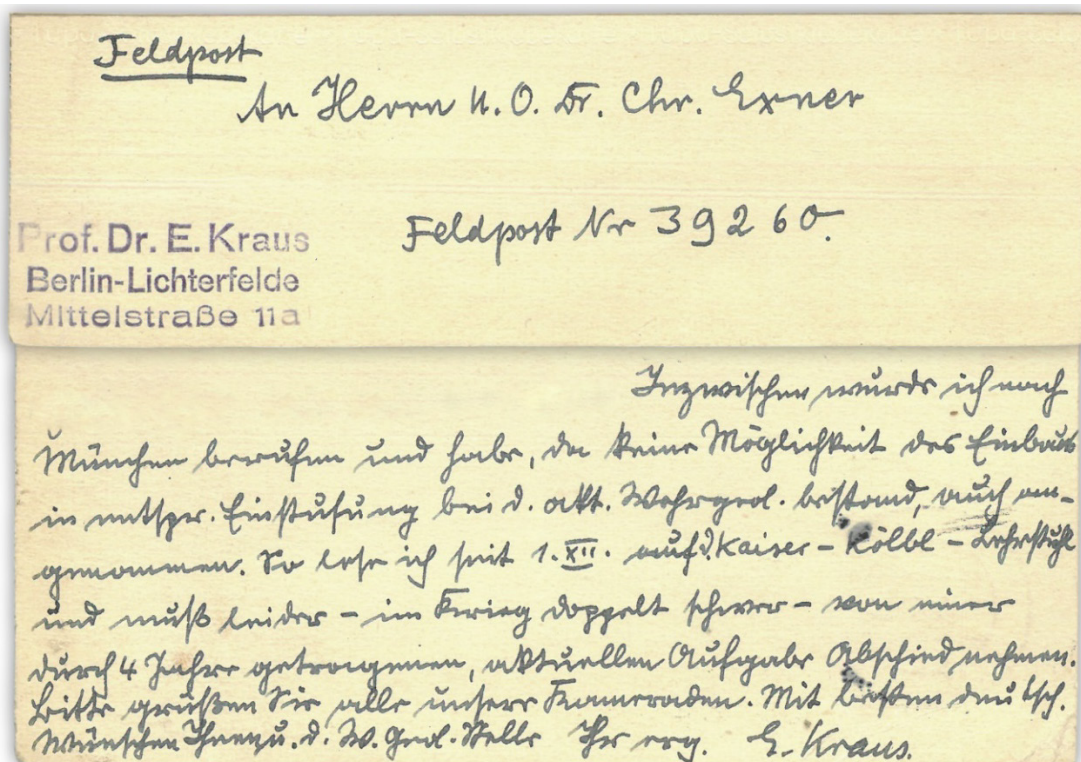 Feldpost
An Herrn U. O. Dr. Chr. Exner
Feldpost Nr 39260.
Prof. Dr. E. Kraus
Berlin-Lichterfelde
Mittelstraße 11a
Inzwischen wurde ich nach
München berufen und habe, da keine Möglichkeit des Einbaus
in entspr. Einstufung bei d. akt. Wehrgeol. bestand, auch an-
genommen. So lese ich seit 1. XII. auf d. Kaiser - Kölbl - Lehrstuhl
und muß leider - im Krieg doppelt schwer - von einer
durch 4 Jahre getragenen, aktuellen Aufgabe Abschied nehmen.
Bitte grüßen Sie alle unsere Kameraden. Mit besten deutsch.
Wünschen Ihnen u. d. W. Geol. Stelle Ihr erg. E. Kraus.